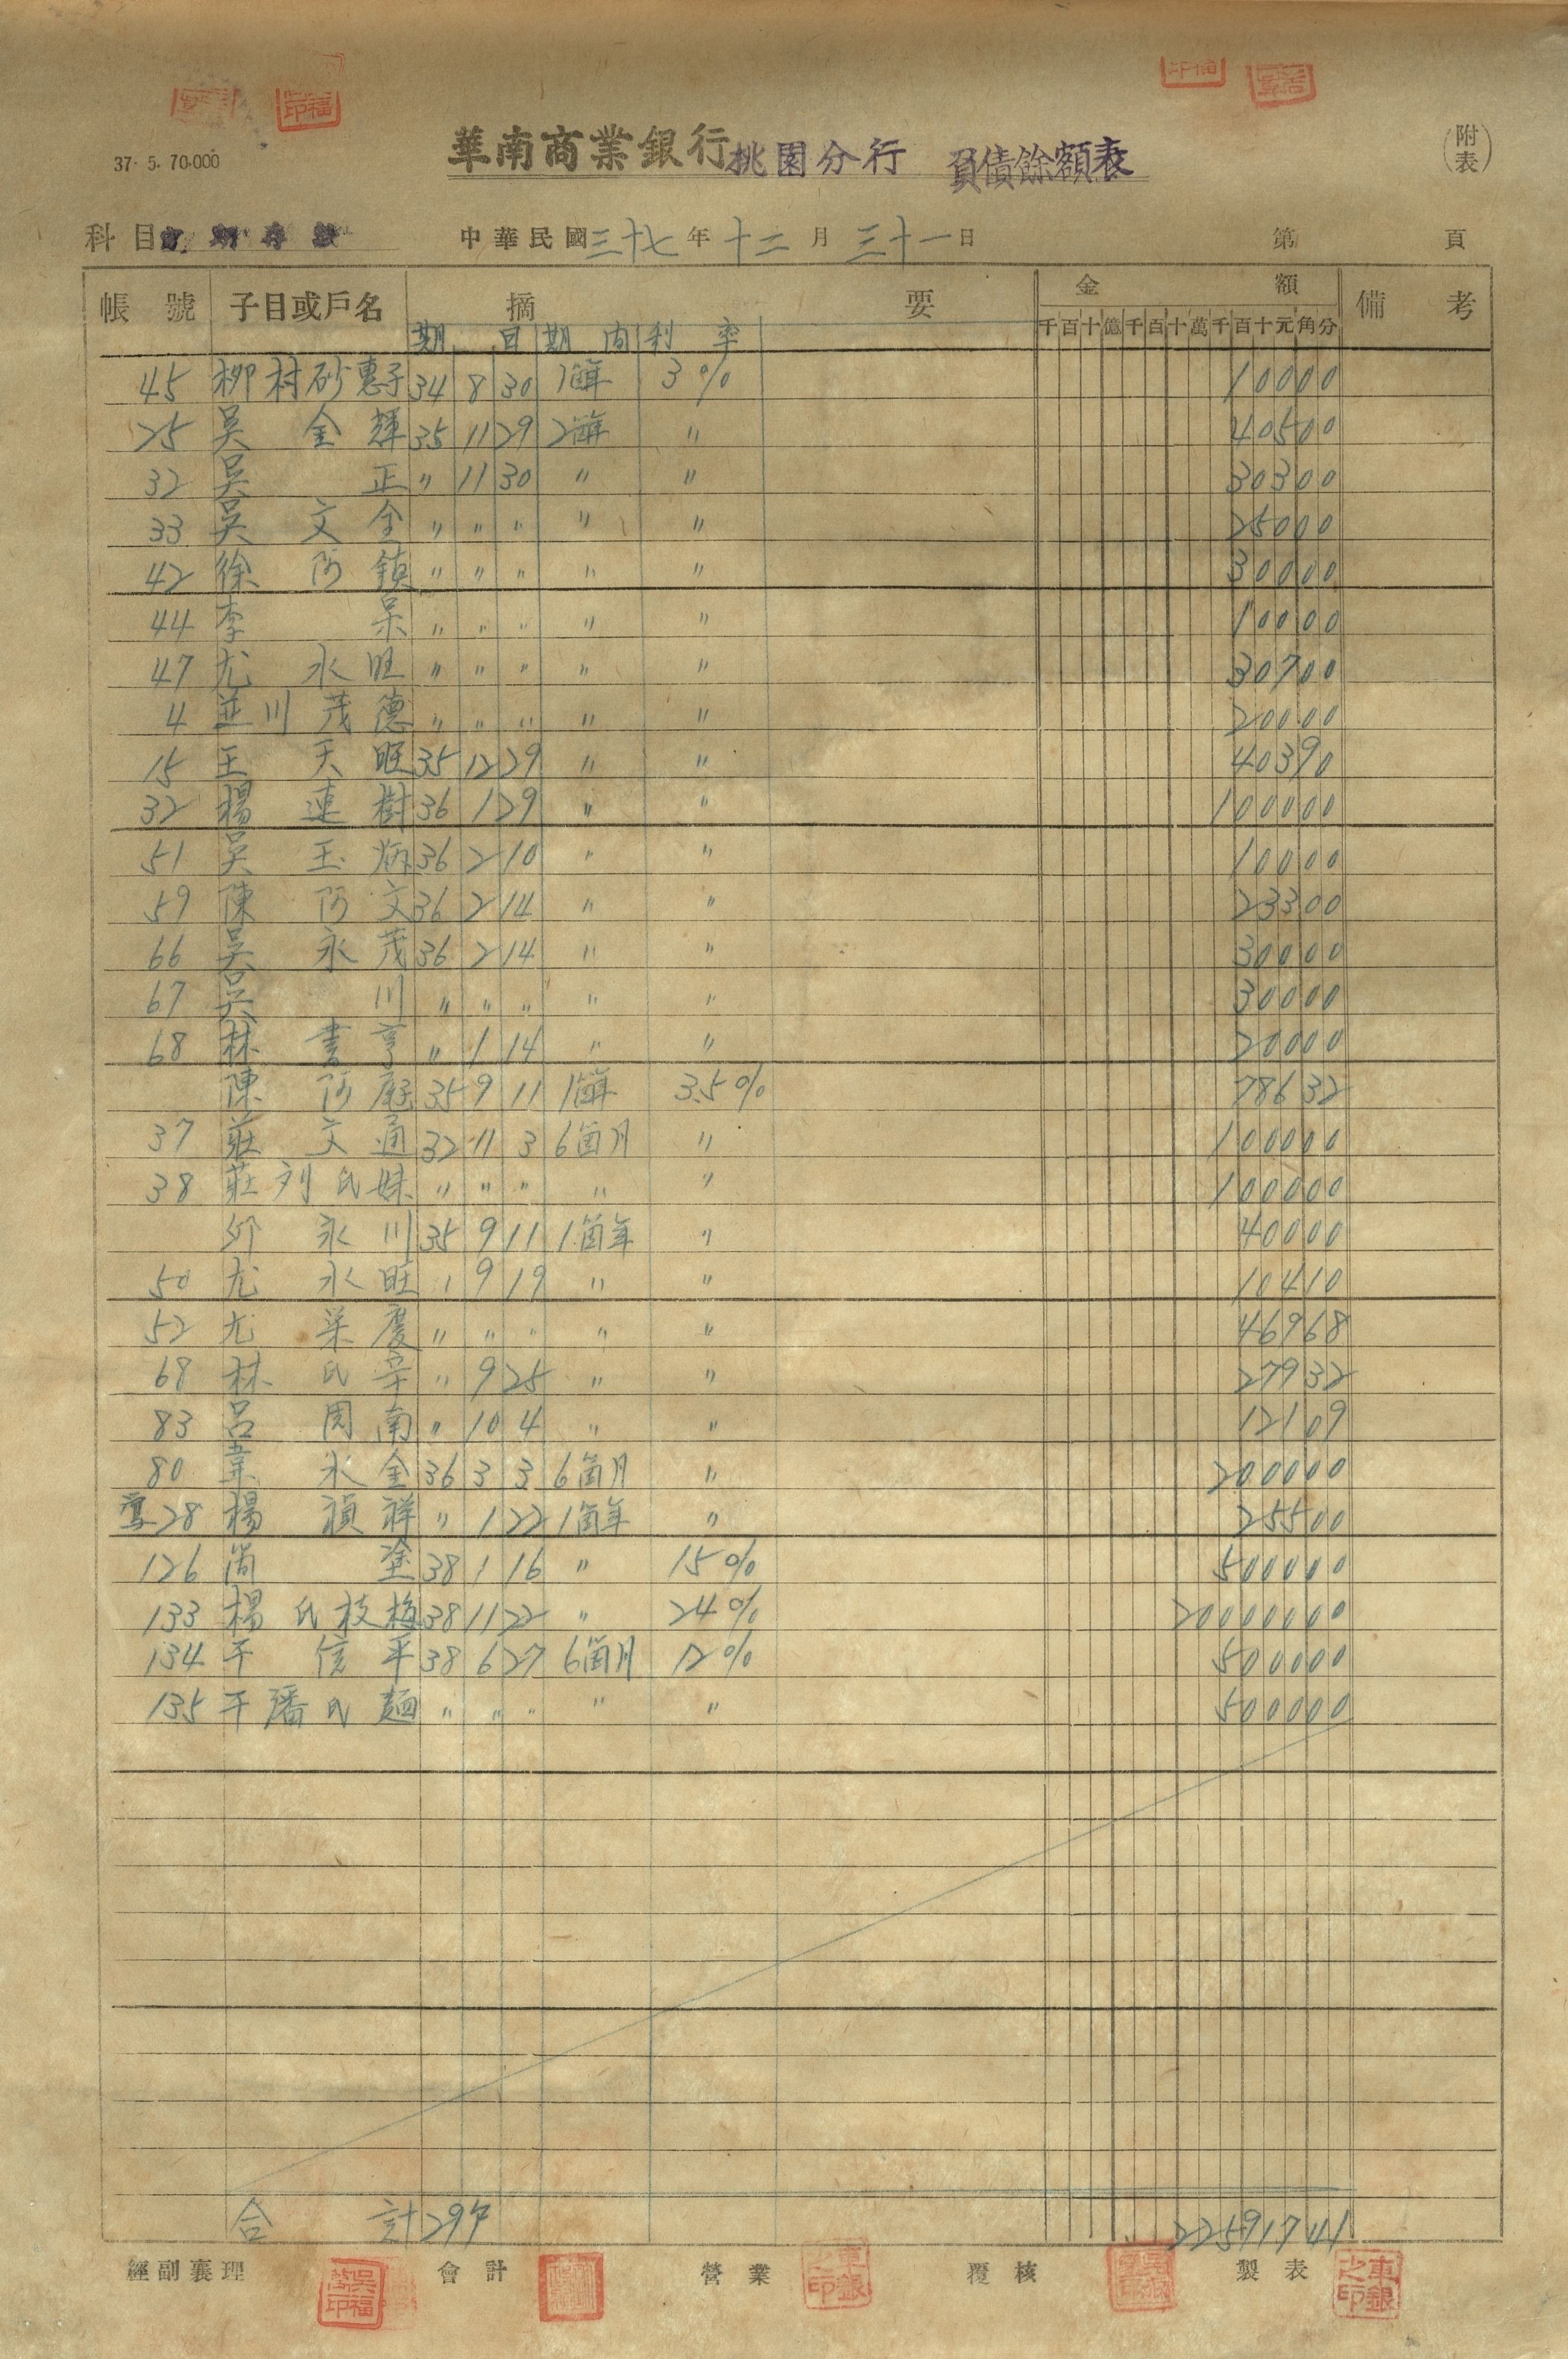 37. 5. 70.000
華南商業銀行桃園分行 負債餘額表
(附表)
科目 定期存款 中華民國三十七年十二月三十一日 第 頁
帳號 子目或戶名 摘要 金額 備考
期日 期間 利率 千百十億千百十萬千百十元角分
45 柳村砂惠子 34 8 30 1箇年 3% 10000
25 吳金輝 35 11 29 2箇年 〃 40500
32 吳正 〃 11 30 〃 〃 30300
33 吳文全 〃 〃 〃 〃 〃 25000
42 徐阿鎮 〃 〃 〃 〃 〃 30000
44 李呆 〃 〃 〃 〃 〃 10000
47 尤永旺 〃 〃 〃 〃 〃 30700
4 並川茂德 〃 〃 〃 〃 〃 20000
15 王天旺 35 12 29 〃 〃 40390
32 楊連樹 36 1 29 〃 〃 100000
51 吳玉炳 36 2 10 〃 〃 10000
59 陳阿文 36 2 14 〃 〃 23300
66 吳永茂 36 2 14 〃 〃 30000
67 吳川 〃 〃 〃 〃 〃 30000
68 林書亨 〃 1 14 〃 〃 20000
陳阿庭 35 9 11 1箇年 3.5% 78632
37 莊文通 32 11 3 6箇月 〃 100000
38 莊列氏妹 〃 〃 〃 〃 〃 100000
邱永川 35 9 11 1箇年 〃 40000
50 尤永旺 〃 9 19 〃 〃 10410
52 尤梁慶 〃 〃 〃 〃 〃 46968
68 林氏辛 〃 9 25 〃 〃 27932
83 呂周南 〃 10 4 〃 〃 12109
80 葉永金 36 3 3 6箇月 〃 200000
28 楊禎祥 〃 1 22 1箇年 〃 25500
126 簡塗 38 1 16 〃 15% 500000
133 楊氏枝梅 38 11 22 〃 24% 20000000
134 干信平 38 6 27 6箇月 12% 500000
135 干潘氏麵 〃 〃 〃 〃 〃 500000
合計 29戶 22591741
經副襄理 會計 營業 覆核 製表